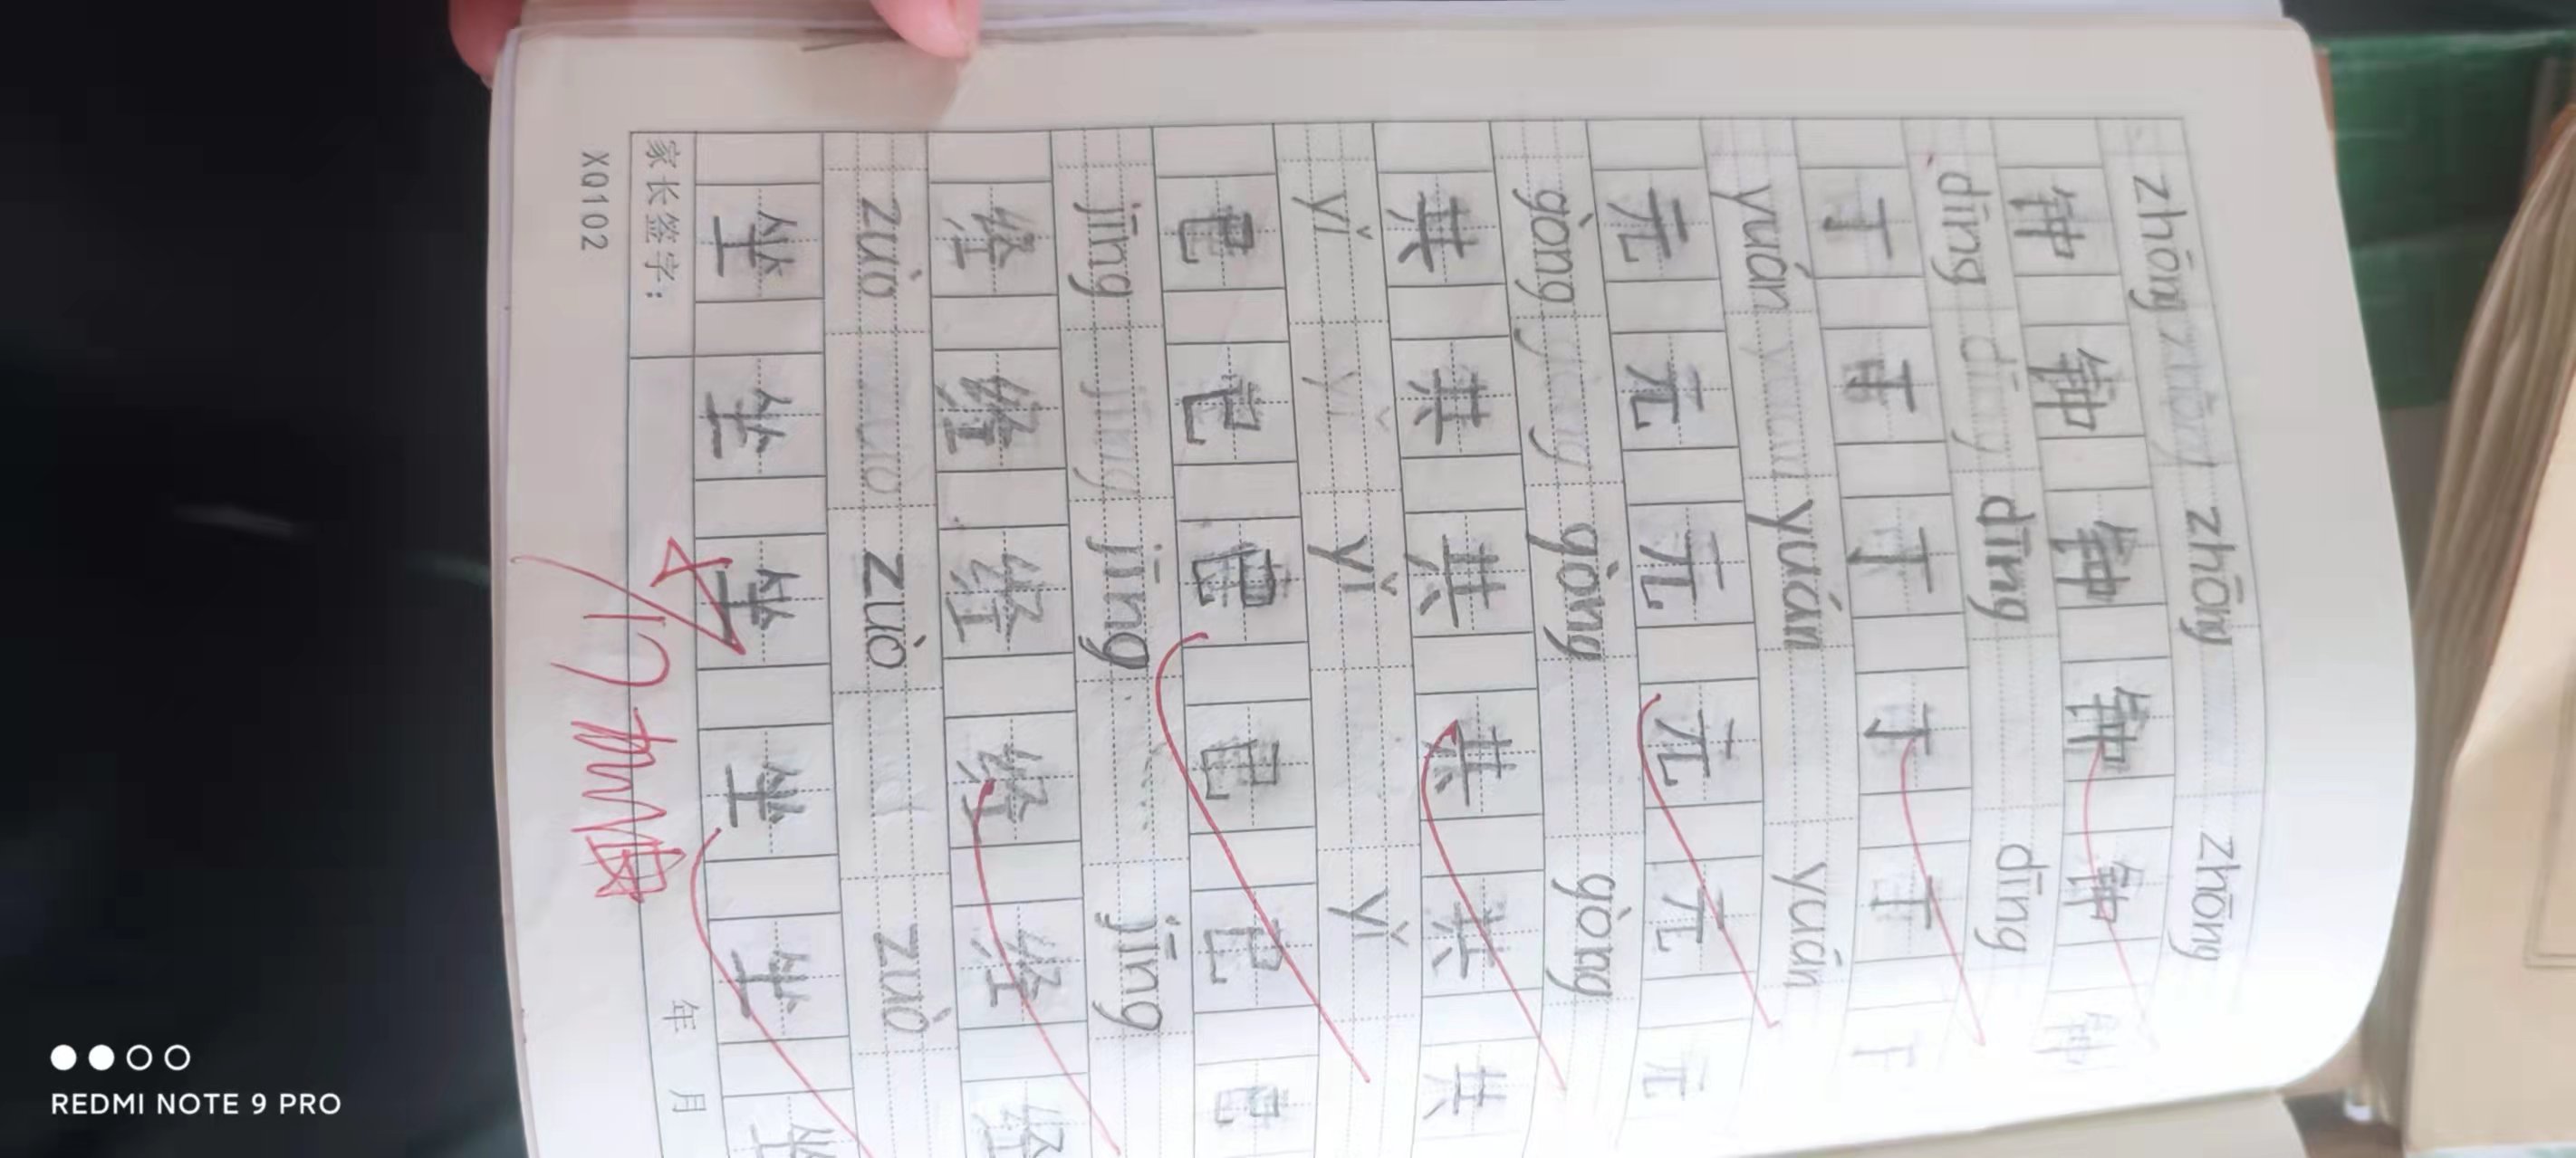 zhōng zhōng zhōng zhōng
钟 钟 钟 钟 钟 钟
dīng dīng dīng dīng
丁 丁 丁 丁 丁 丁
yuán yuán yuán yuán
元 元 元 元 元 元
gòng gòng gòng gòng
共 共 共 共 共 共
yǐ yǐ yǐ yǐ
已 已 已 已 已 已
jīng jīng jīng jīng
经 经 经 经 经 经
zuò zuò zuò zuò
坐 坐 坐 坐 坐 坐
家长签字: 年 月
XQ102
REDMI NOTE 9 PRO